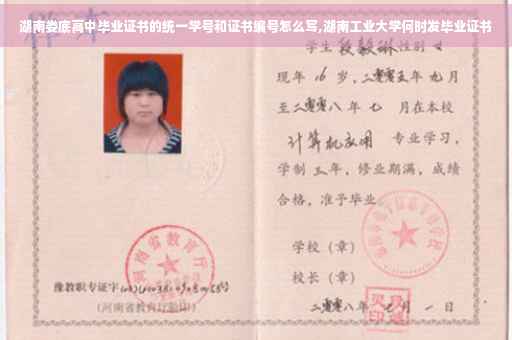 湖南娄底高中毕业证书的统一学号和证书编号怎么写,湖南工业大学何时发毕业证书
学生 段毅琳 性别 女
现年 16 岁,二零零五年 九月
至二零零八年 七 月在本校
计算机应用 专业学习,
学制 三年,修业期满,成绩
合格,准予毕业
学校(章)
校长(章)
二零零八年 七 月 一 日
河南省教育厅
豫教职专证字
(河南省教育厅验印)